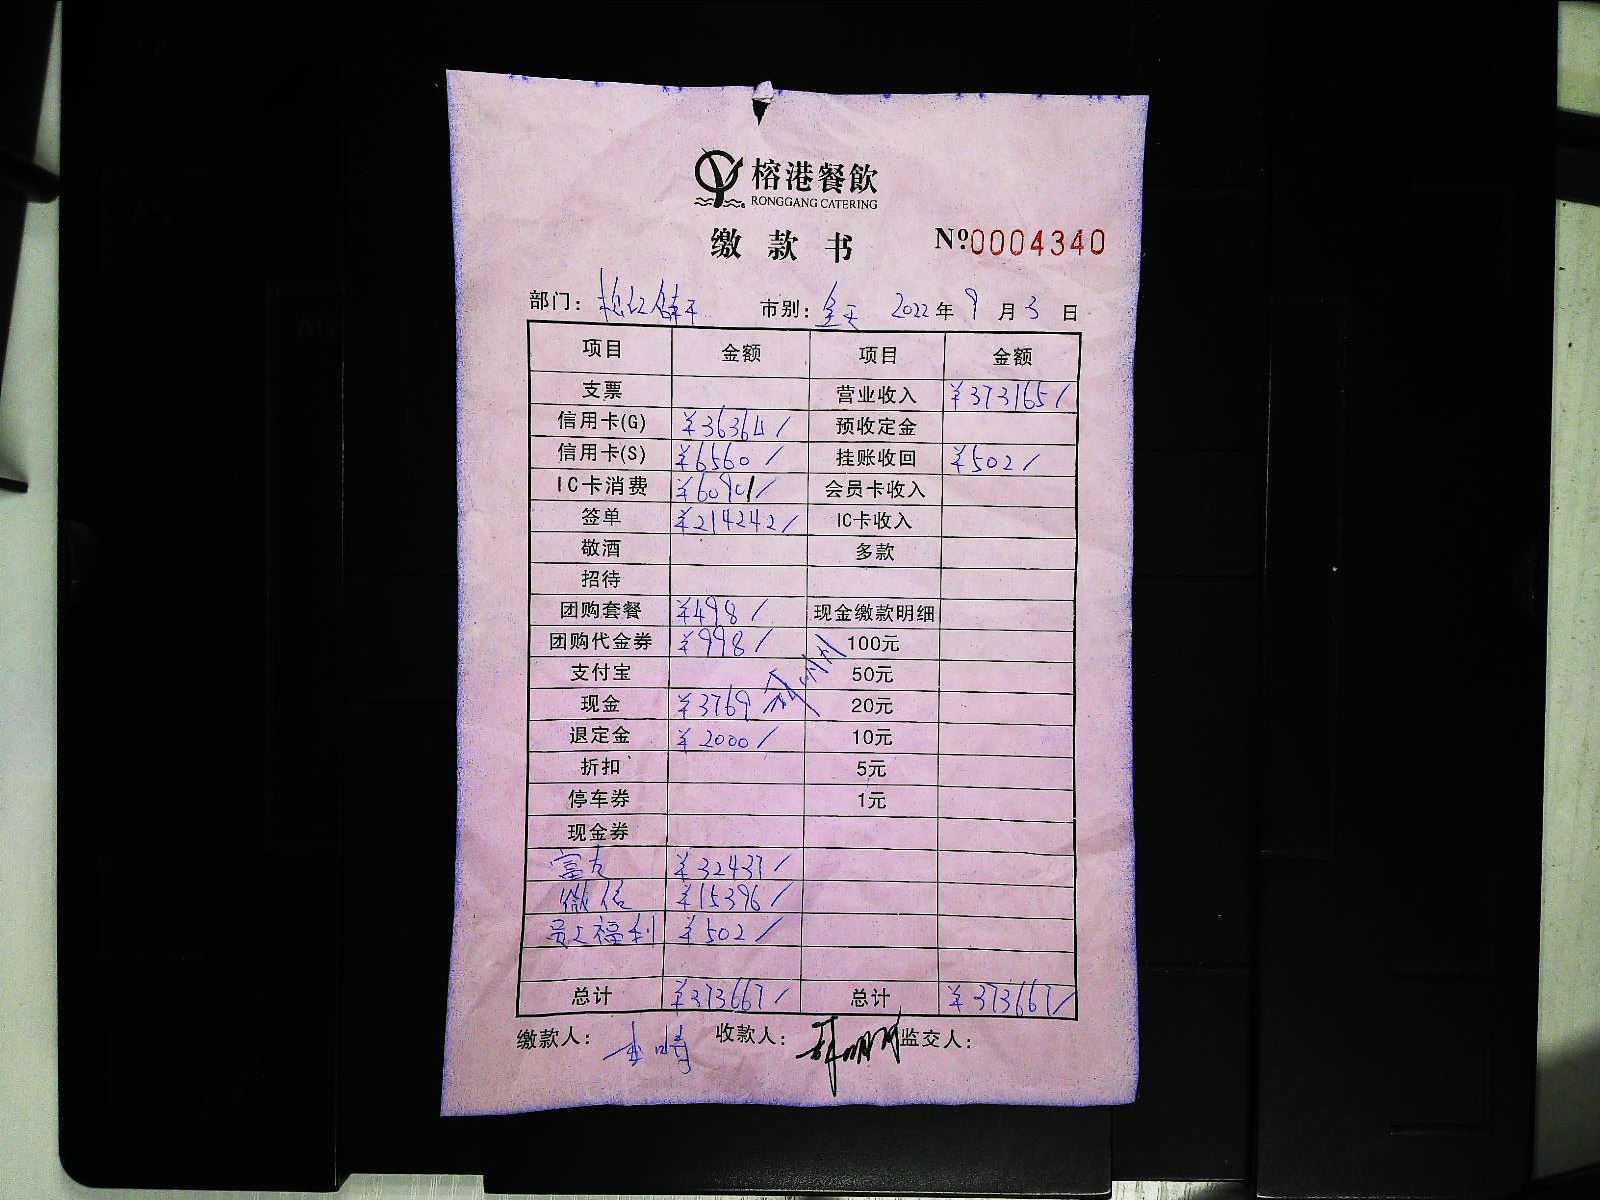 榕港餐飲
RONGGANG CATERING
缴款书 Nº0004340
部门: 市别: 全天 2022年9月3日
项目 金额 项目 金额
支票 营业收入 ¥373165/
信用卡(G) ¥36364/ 预收定金
信用卡(S) ¥6560/ 挂账收回 ¥502/
IC卡消费 ¥60901/ 会员卡收入
签单 ¥214242/ IC卡收入
敬酒 多款
招待
团购套餐 ¥498/ 现金缴款明细
团购代金券 ¥998/ 100元
支付宝 50元
现金 ¥3769 20元
退定金 ¥2000/ 10元
折扣 5元
停车券 1元
现金券
¥32437/
微信 ¥15396/
员工福利 ¥502/
总计 ¥373667/ 总计 ¥373667/
缴款人: 收款人: 监交人: